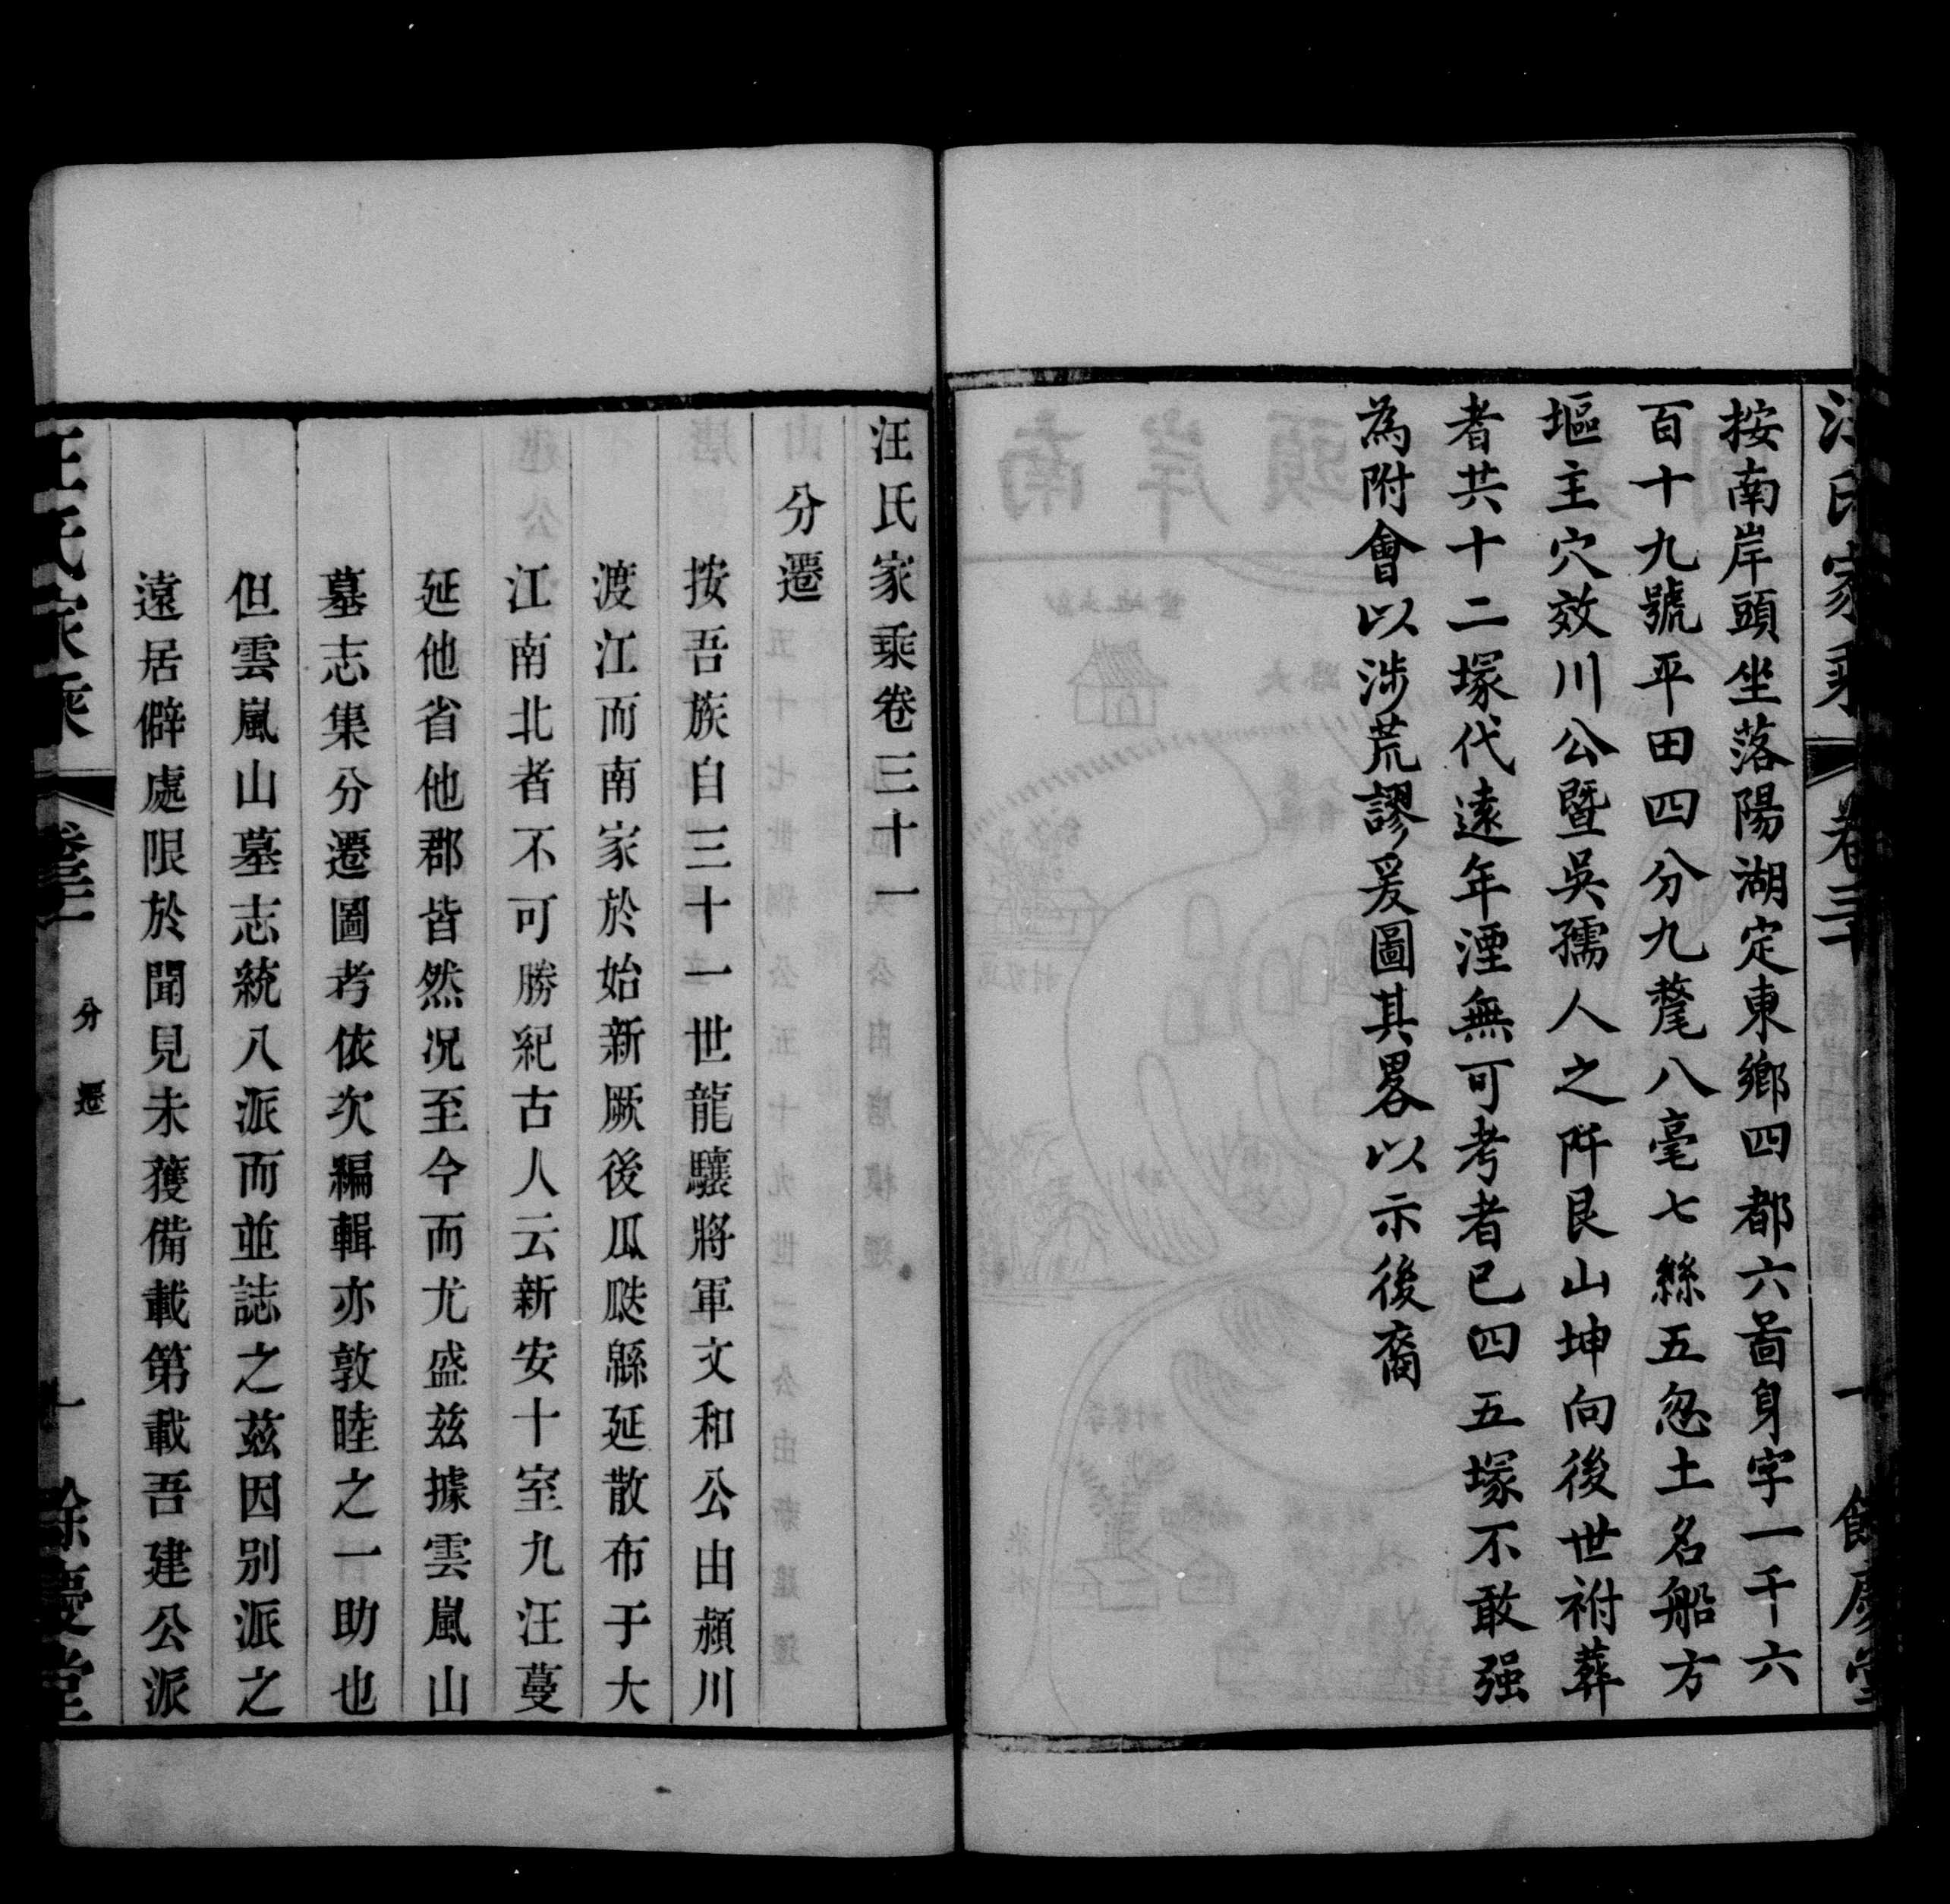 汪氏家乘
卷三十
餘慶堂
按南岸頭坐落陽湖定東鄉四都六啚身字一千六
百十九號平田四分九釐八毫七絲五忽土名船方
塸主穴效川公暨吳孺人之阡艮山坤向後世祔葬
者共十二塚代遠年湮無可考者已四五塚不敢强
為附會以涉荒謬爰圖其畧以示後裔
汪氏家乘卷三十一
分遷
按吾族自三十一世龍驤將軍文和公由潁川
渡江而南家於始新厥後瓜瓞緜延散布于大
江南北者不可勝紀古人云新安十室九汪蔓
延他省他郡皆然况至今而尤盛茲據雲嵐山
墓志集分遷圖考依次編輯亦敦睦之一助也
但雲嵐山墓志統八派而並誌之茲因別派之
遠居僻處限於聞見未獲備載第載吾建公派
汪氏家乘
卷三十一
分遷
一
餘慶堂